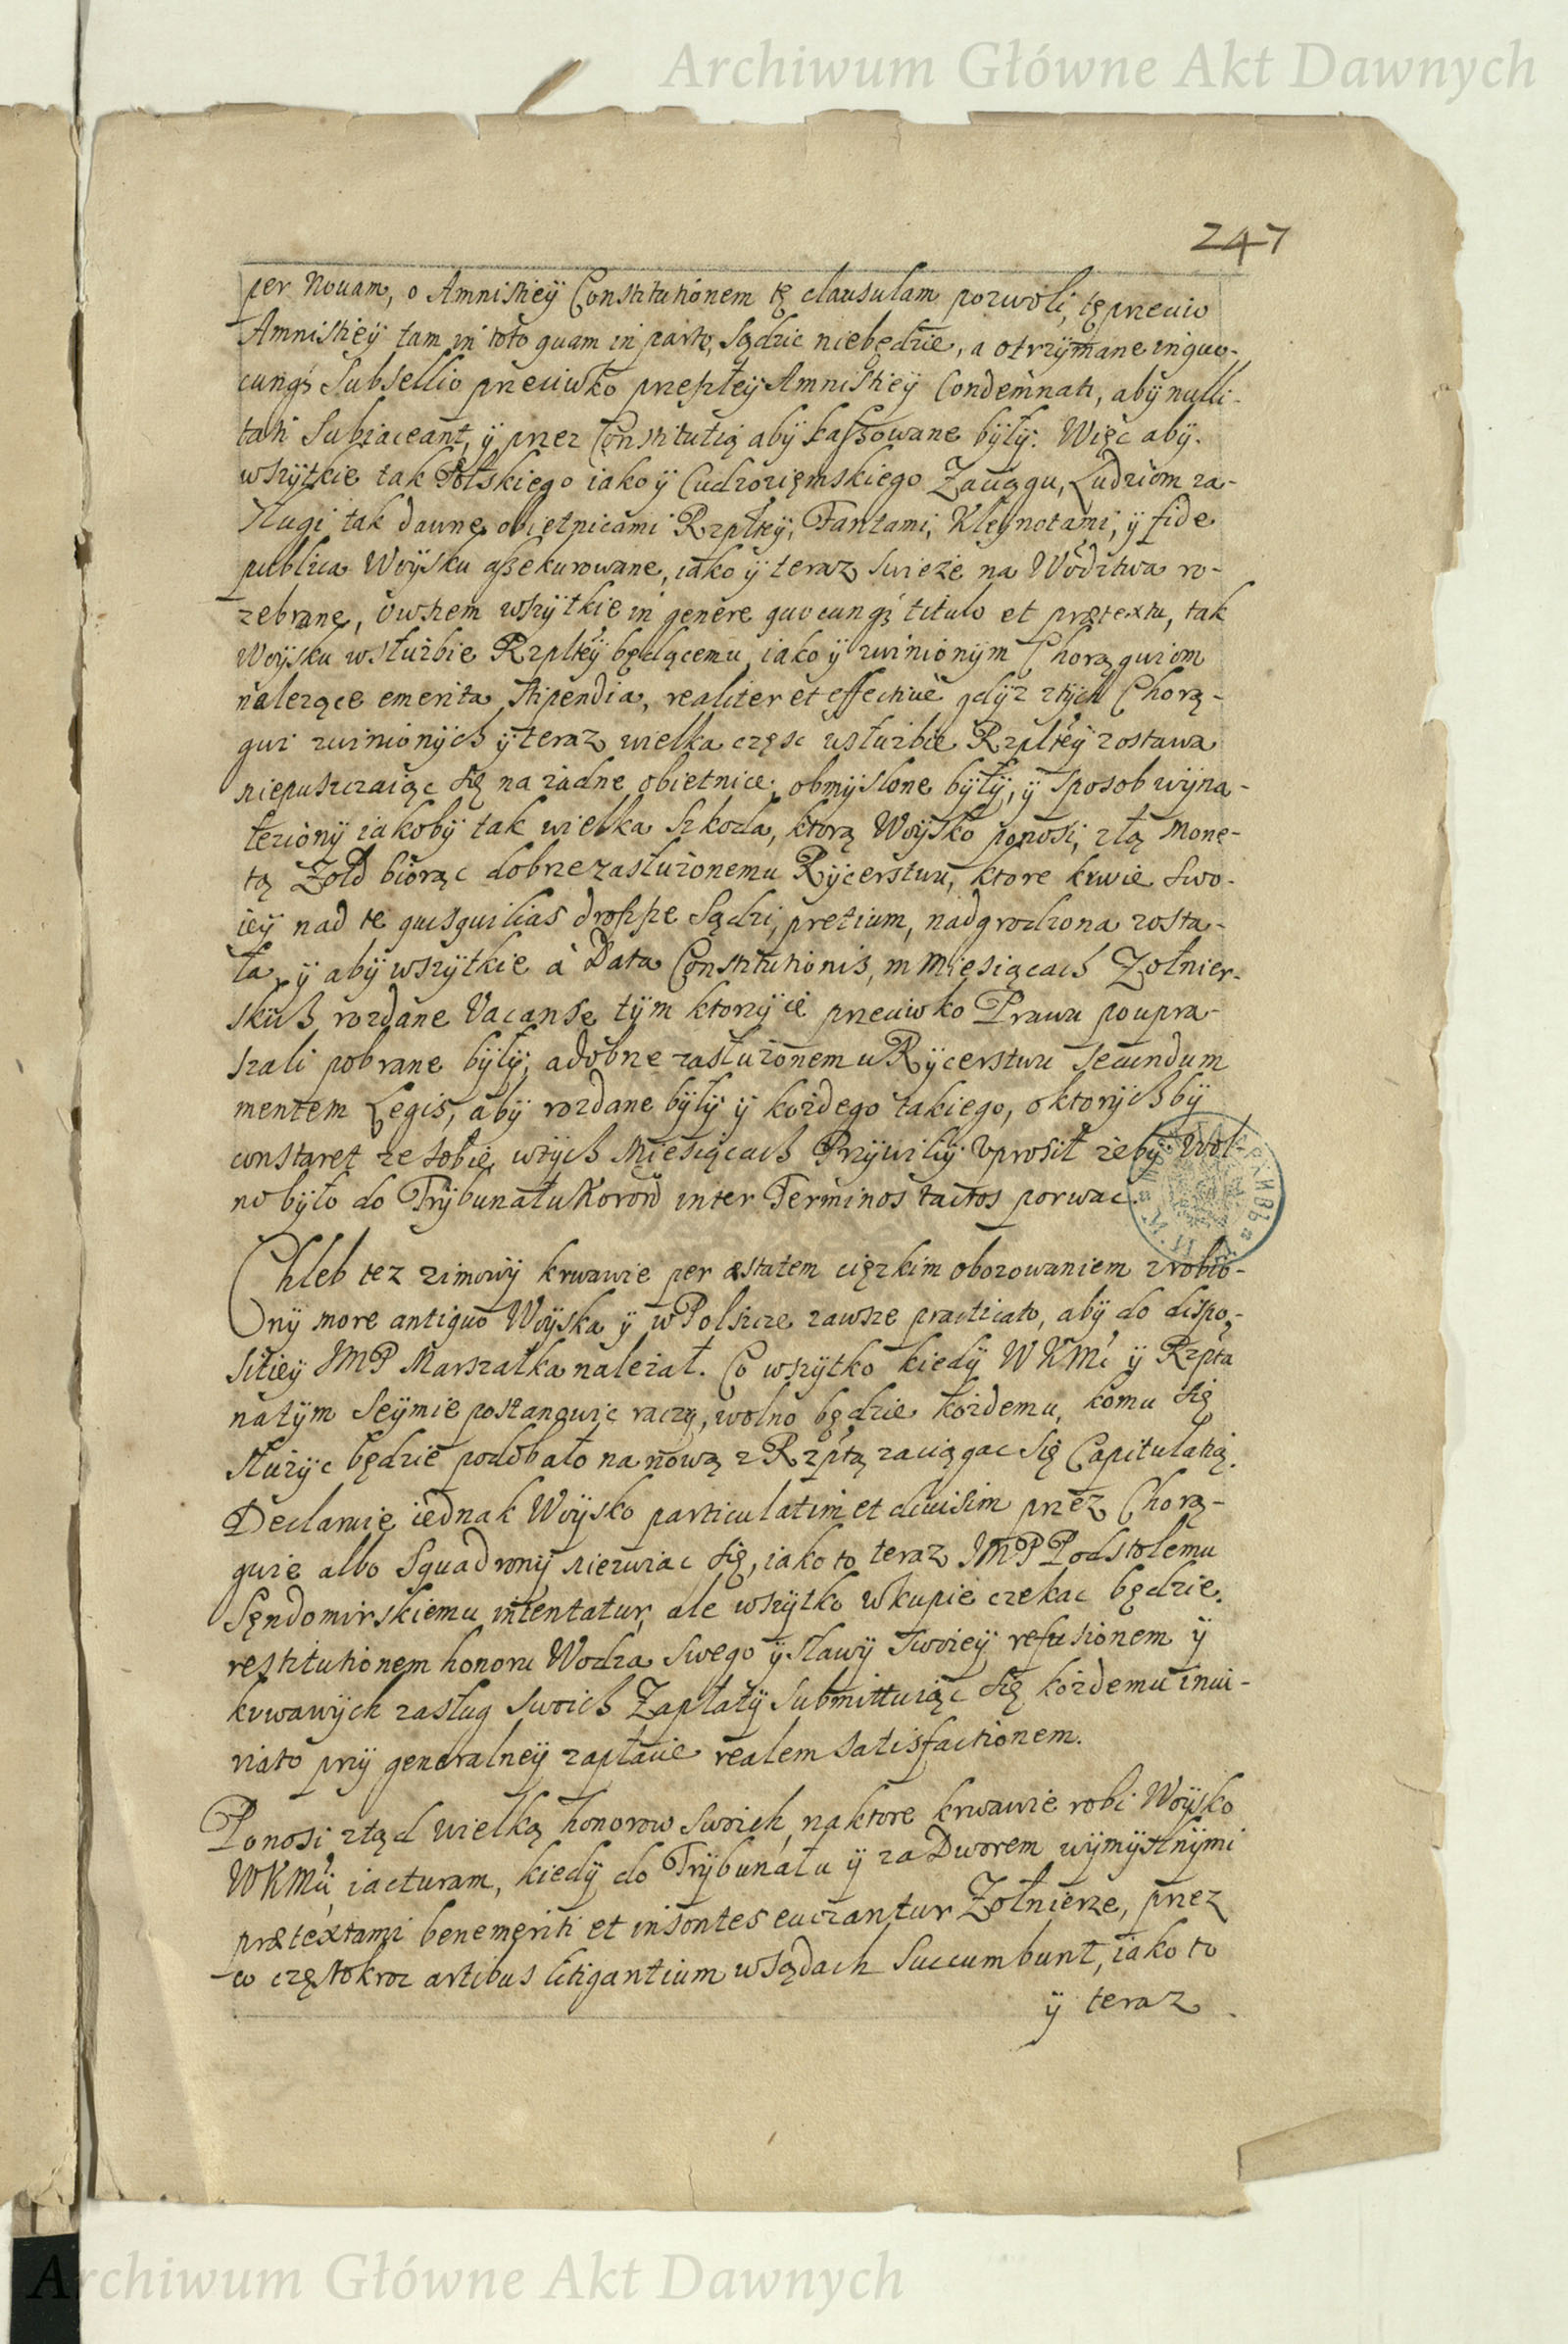 Archiwum Główne Akt Dawnych
247
per Nouam, o Amnistieÿ Constitutionem tę clausulam pozwoli, tę przeciw
Amnistieÿ tam in toto quam in parte, Sądzic niebędzie, a otrzÿmane in quo-
cunqꝫ Subsellio przeciwko przeszłeÿ Amnistieÿ Condemnaty, abÿ nulli-
tati Subiaceant, ÿ przez Constitutią abÿ kassowane bÿłÿ. Więc abÿ
wszÿtkie tak Polskiego iako ÿ Cudzozięmskiego Zaciągu, Ludziom za-
sługi tak dawne obietnicami Rzpltey, Fantami, Kleÿnotami, ÿ fide
publica Woÿsku assekurowane, iako ÿ teraz swieze na Wodztwa ro-
zebrane, owszem wszÿtkie in genere quocunqꝫ titulo et prætextu, tak
Woÿsku w służbie Rzpltey będącemu, iako ÿ zwinionÿm Chorągwiom
nalezące emerita stipendia, realiter et effectiuè gdÿz z tÿch Chorą-
gwi zwinionÿch ÿ teraz wielka częsc w służbie Rzpltey zostawa
niepuszczaiąc się na żadne obietnice, obmÿslone bÿłÿ, ÿ sposob wÿna-
leziony iakobÿ tak wielka Szkoda, ktorą Woÿsko ponosi, złą Mone-
tą Zołd biorąc dobrze zasłużonemu Rÿcerstwu, ktore krwie swo-
ieÿ nad te quisquilias droższe Sądzi, pretium, nadgrodzona zosta-
ła, ÿ abÿ wszÿtkie à Data Constitutionis, in Miesiącach Zołnier-
skich rozdane Vacanse tÿm ktorzÿ ie przeciwko Prawu poupra-
szali pobrane bÿłÿ, a dobrze zasłużonemu Rÿcerstwu secundum
mentem Legis, abÿ rozdane bÿłÿ ÿ kożdego takiego, o ktorÿch bÿ
constaret ze sobie w tÿch Miesiącach Przÿwiliÿ Vprosił żebÿ Wol-
no bÿło do Trÿbunału Koron inter Terminos tactos pozwac.
Chleb tez zimowÿ krwawie per æstatem cięzkim obozowaniem zrobio-
nÿ more antiquo Woÿska ÿ w Polszcze zawsze practicato, abÿ do dispo-
sitieÿ JMP Marszałka należał. Co wszÿtko kiedÿ WKMć ÿ Rzpta
na tÿm Seÿmie postanowic raczą, wolno będzie kożdemu, komu się
służÿc będzie podobało na nową z Rzptą zaciągac się Capitulatią.
Declaruie iednak Woÿsko particulatim et diuisim przez Chorą-
gwie albo Squadronÿ niezwiac się, iako to teraz JMP Podstolemu
Sęndomirskiemu intentatur, ale wszÿtko w kupie czekac będzie
restitutionem honoru Wodza swego ÿ sławÿ swoieÿ refusionem ÿ
krwawÿch zasług swoich Zapłatÿ submittuiąc się kożdemu iniu-
riato przÿ generalneÿ zapłacie realem satisfactionem.
Ponosi ztąd wielką honorow swoich, na ktore krwawie robi Woÿsko
WKMci iacturam, kiedÿ do Trÿbunału ÿ za Dworem wÿmÿslnÿmi
prætextami benemeriti et insontes euocantur Zołnierze, przez
co częstokroc artibus litigantium w Sądach Succumbunt, iako to
ÿ teraz
Archiwum Główne Akt Dawnych